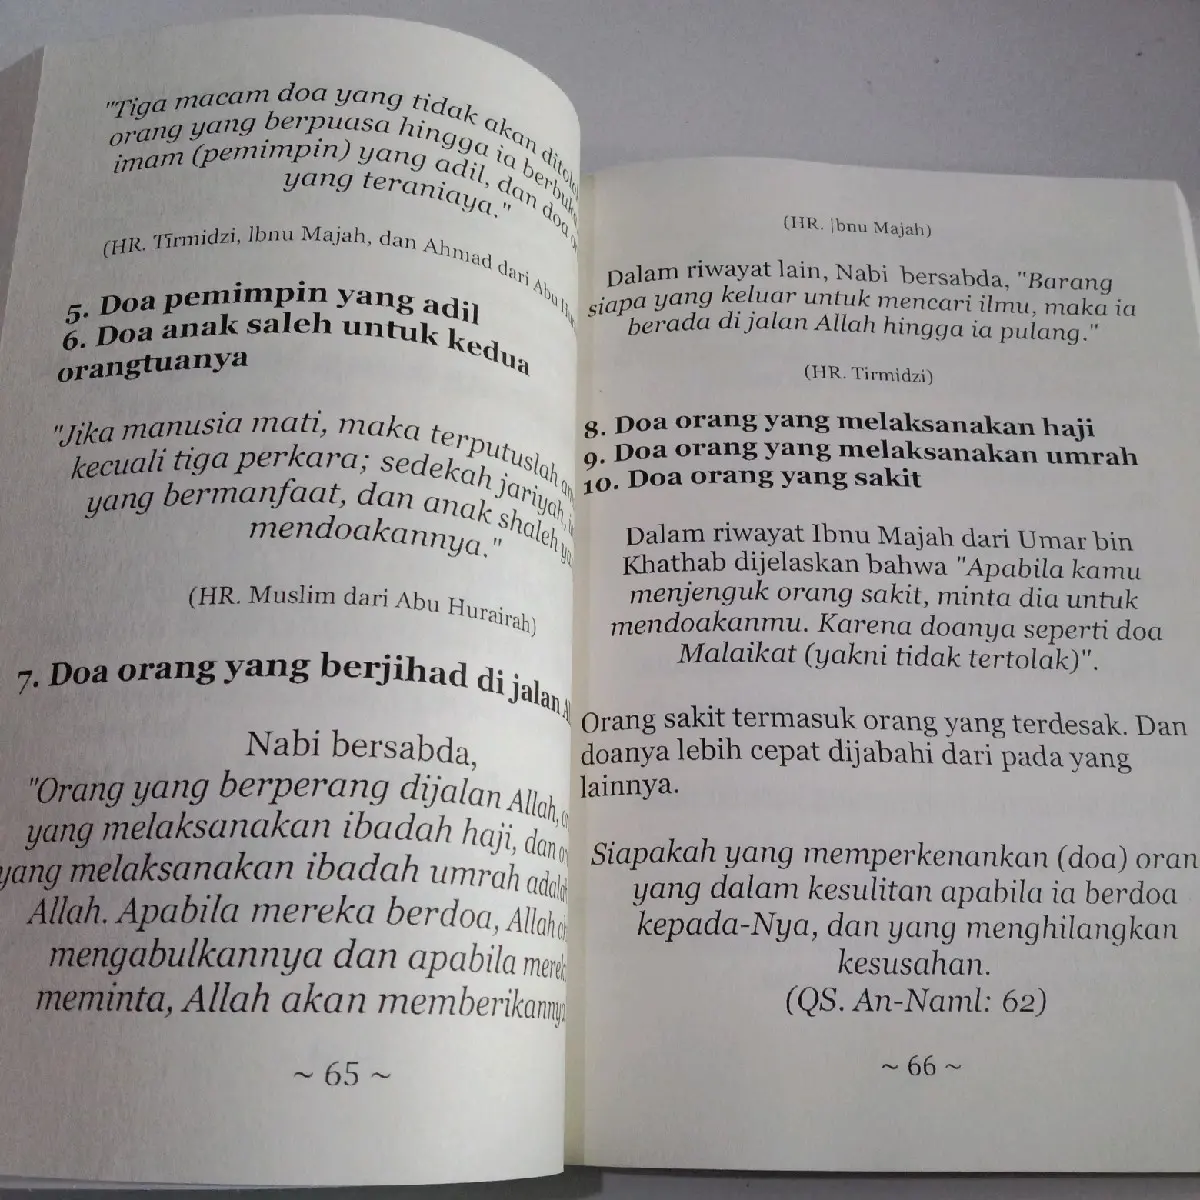 "Tiga macam doa yang tidak akan
orang yang berpuasa hingga ia
imam (pemimpin) yang adil, dan doa
yang teraniaya."
(HR. Tirmidzi, Ibnu Majah, dan Ahmad dari Abu
5. Doa pemimpin yang adil
6. Doa anak saleh untuk kedua
orangtuanya
"Jika manusia mati, maka terputuslah
kecuali tiga perkara; sedekah jariyah,
yang bermanfaat, dan anak shaleh
mendoakannya."
(HR. Muslim dari Abu Hurairah)
7. Doa orang yang berjihad di jalan
Nabi bersabda,
"Orang yang berperang dijalan Allah,
yang melaksanakan ibadah haji, dan
yang melaksanakan ibadah umrah
Allah. Apabila mereka berdoa, Allah
mengabulkannya dan apabila
meminta, Allah akan
~ 65 ~
(HR. Ibnu Majah)
Dalam riwayat lain, Nabi bersabda, "Barang
siapa yang keluar untuk mencari ilmu, maka ia
berada di jalan Allah hingga ia pulang."
(HR. Tirmidzi)
8. Doa orang yang melaksanakan haji
9. Doa orang yang melaksanakan umrah
10. Doa orang yang sakit
Dalam riwayat Ibnu Majah dari Umar bin
Khathab dijelaskan bahwa "Apabila kamu
menjenguk orang sakit, minta dia untuk
mendoakanmu. Karena doanya seperti doa
Malaikat (yakni tidak tertolak)".
Orang sakit termasuk orang yang terdesak. Dan
doanya lebih cepat dijabahi dari pada yang
lainnya.
Siapakah yang memperkenankan (doa) oran
yang dalam kesulitan apabila ia berdoa
kepada-Nya, dan yang menghilangkan
kesusahan.
(QS. An-Naml: 62)
~ 66 ~